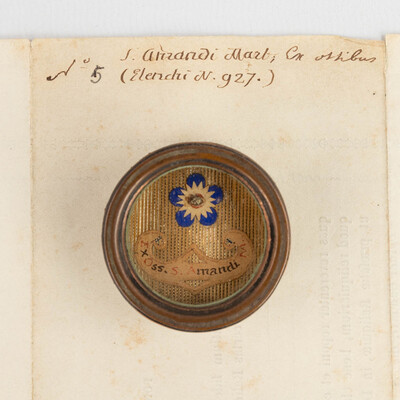 S. Amandi Mart; Ex ossibus
No 5 (Elenchi N. 927.)
Ex Oss. S. Amandi M.